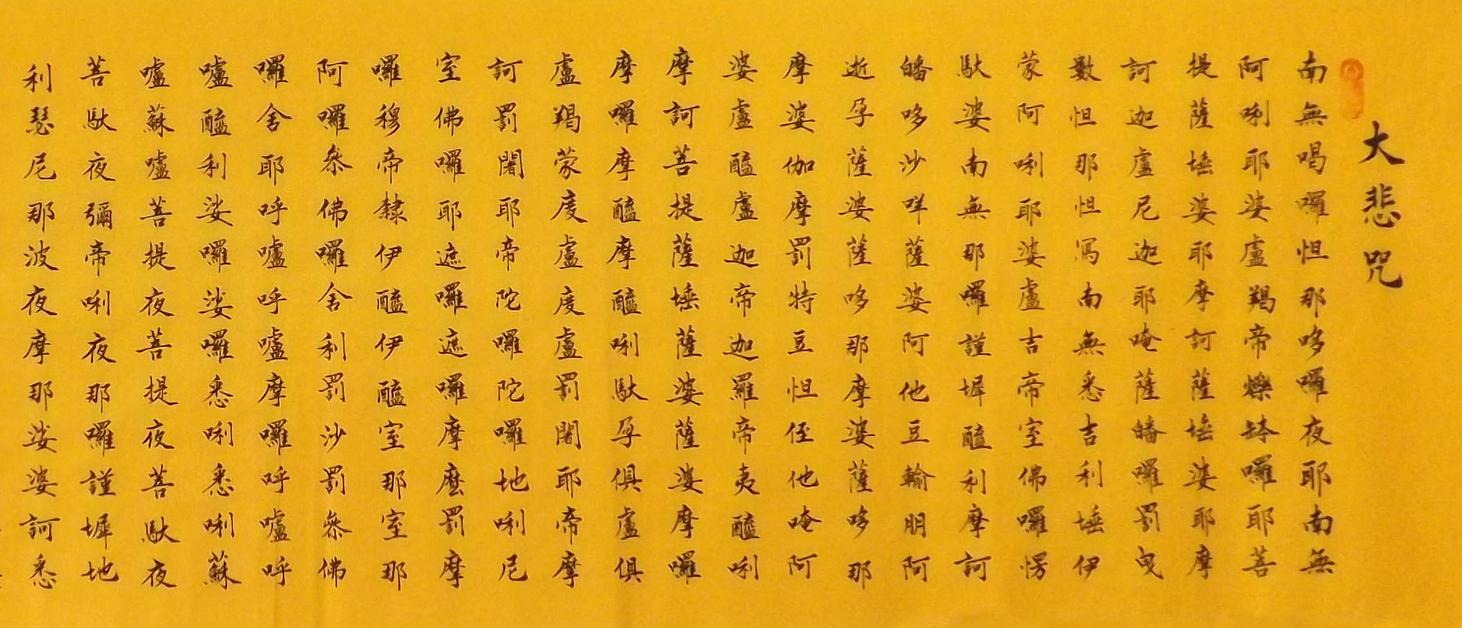 大悲咒
南無喝囉怛那哆囉夜耶南無
阿唎耶婆盧羯帝爍缽囉耶菩
提薩埵婆耶摩訶薩埵婆耶摩
訶迦盧尼迦耶唵薩皤囉罰曳
數怛那怛寫南無悉吉利埵伊
蒙阿唎耶婆盧吉帝室佛囉愣
馱婆南無那囉謹墀醯利摩訶
皤哆沙咩薩婆阿他豆輸朋阿
逝孕薩婆薩哆那摩婆薩哆那
摩婆伽摩罰特豆怛侄他唵阿
婆盧醯盧迦帝迦羅帝夷醯唎
摩訶菩提薩埵薩婆薩婆摩囉
摩囉摩醯摩醯唎馱孕俱盧俱
盧羯蒙度盧度盧罰闍耶帝摩
訶罰闍耶帝陀囉陀囉地唎尼
室佛囉耶遮囉遮囉摩麼罰摩
囉穆帝隸伊醯伊醯室那室那
阿囉參佛囉舍利罰沙罰參佛
囉舍耶呼嚧呼嚧摩囉呼嚧呼
嚧醯利娑囉娑囉悉唎悉唎蘇
嚧蘇嚧菩提夜菩提夜菩馱夜
菩馱夜彌帝唎夜那囉謹墀地
利瑟尼那波夜摩那娑婆訶悉